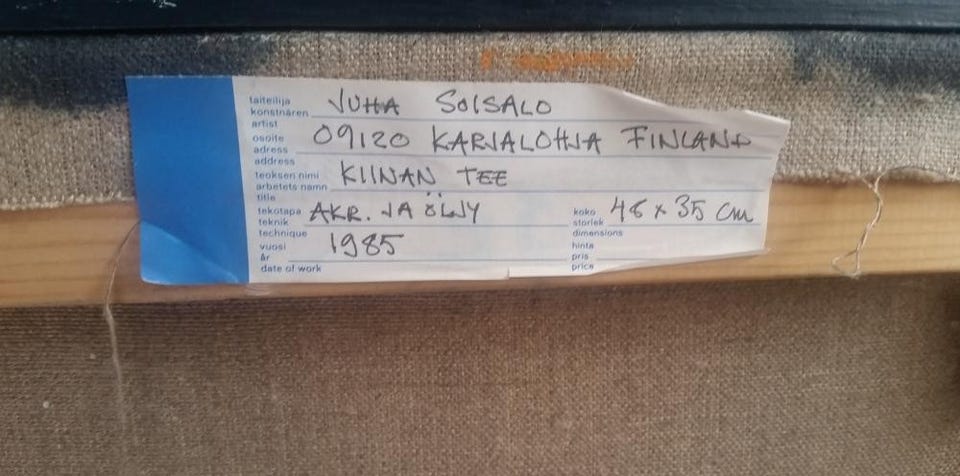 taiteilija
konstnären JUHA SOISALO
artist
osoite
adress 09120 KARJALOHJA FINLAND
address
teoksen nimi
arbetets namn KIINAN TEE
title
tekotapa
teknik AKR. JA ÖLJY
technique
koko
storlek 46 x 35 cm
dimensions
vuosi
år 1985
date of work
hinta
pris
price